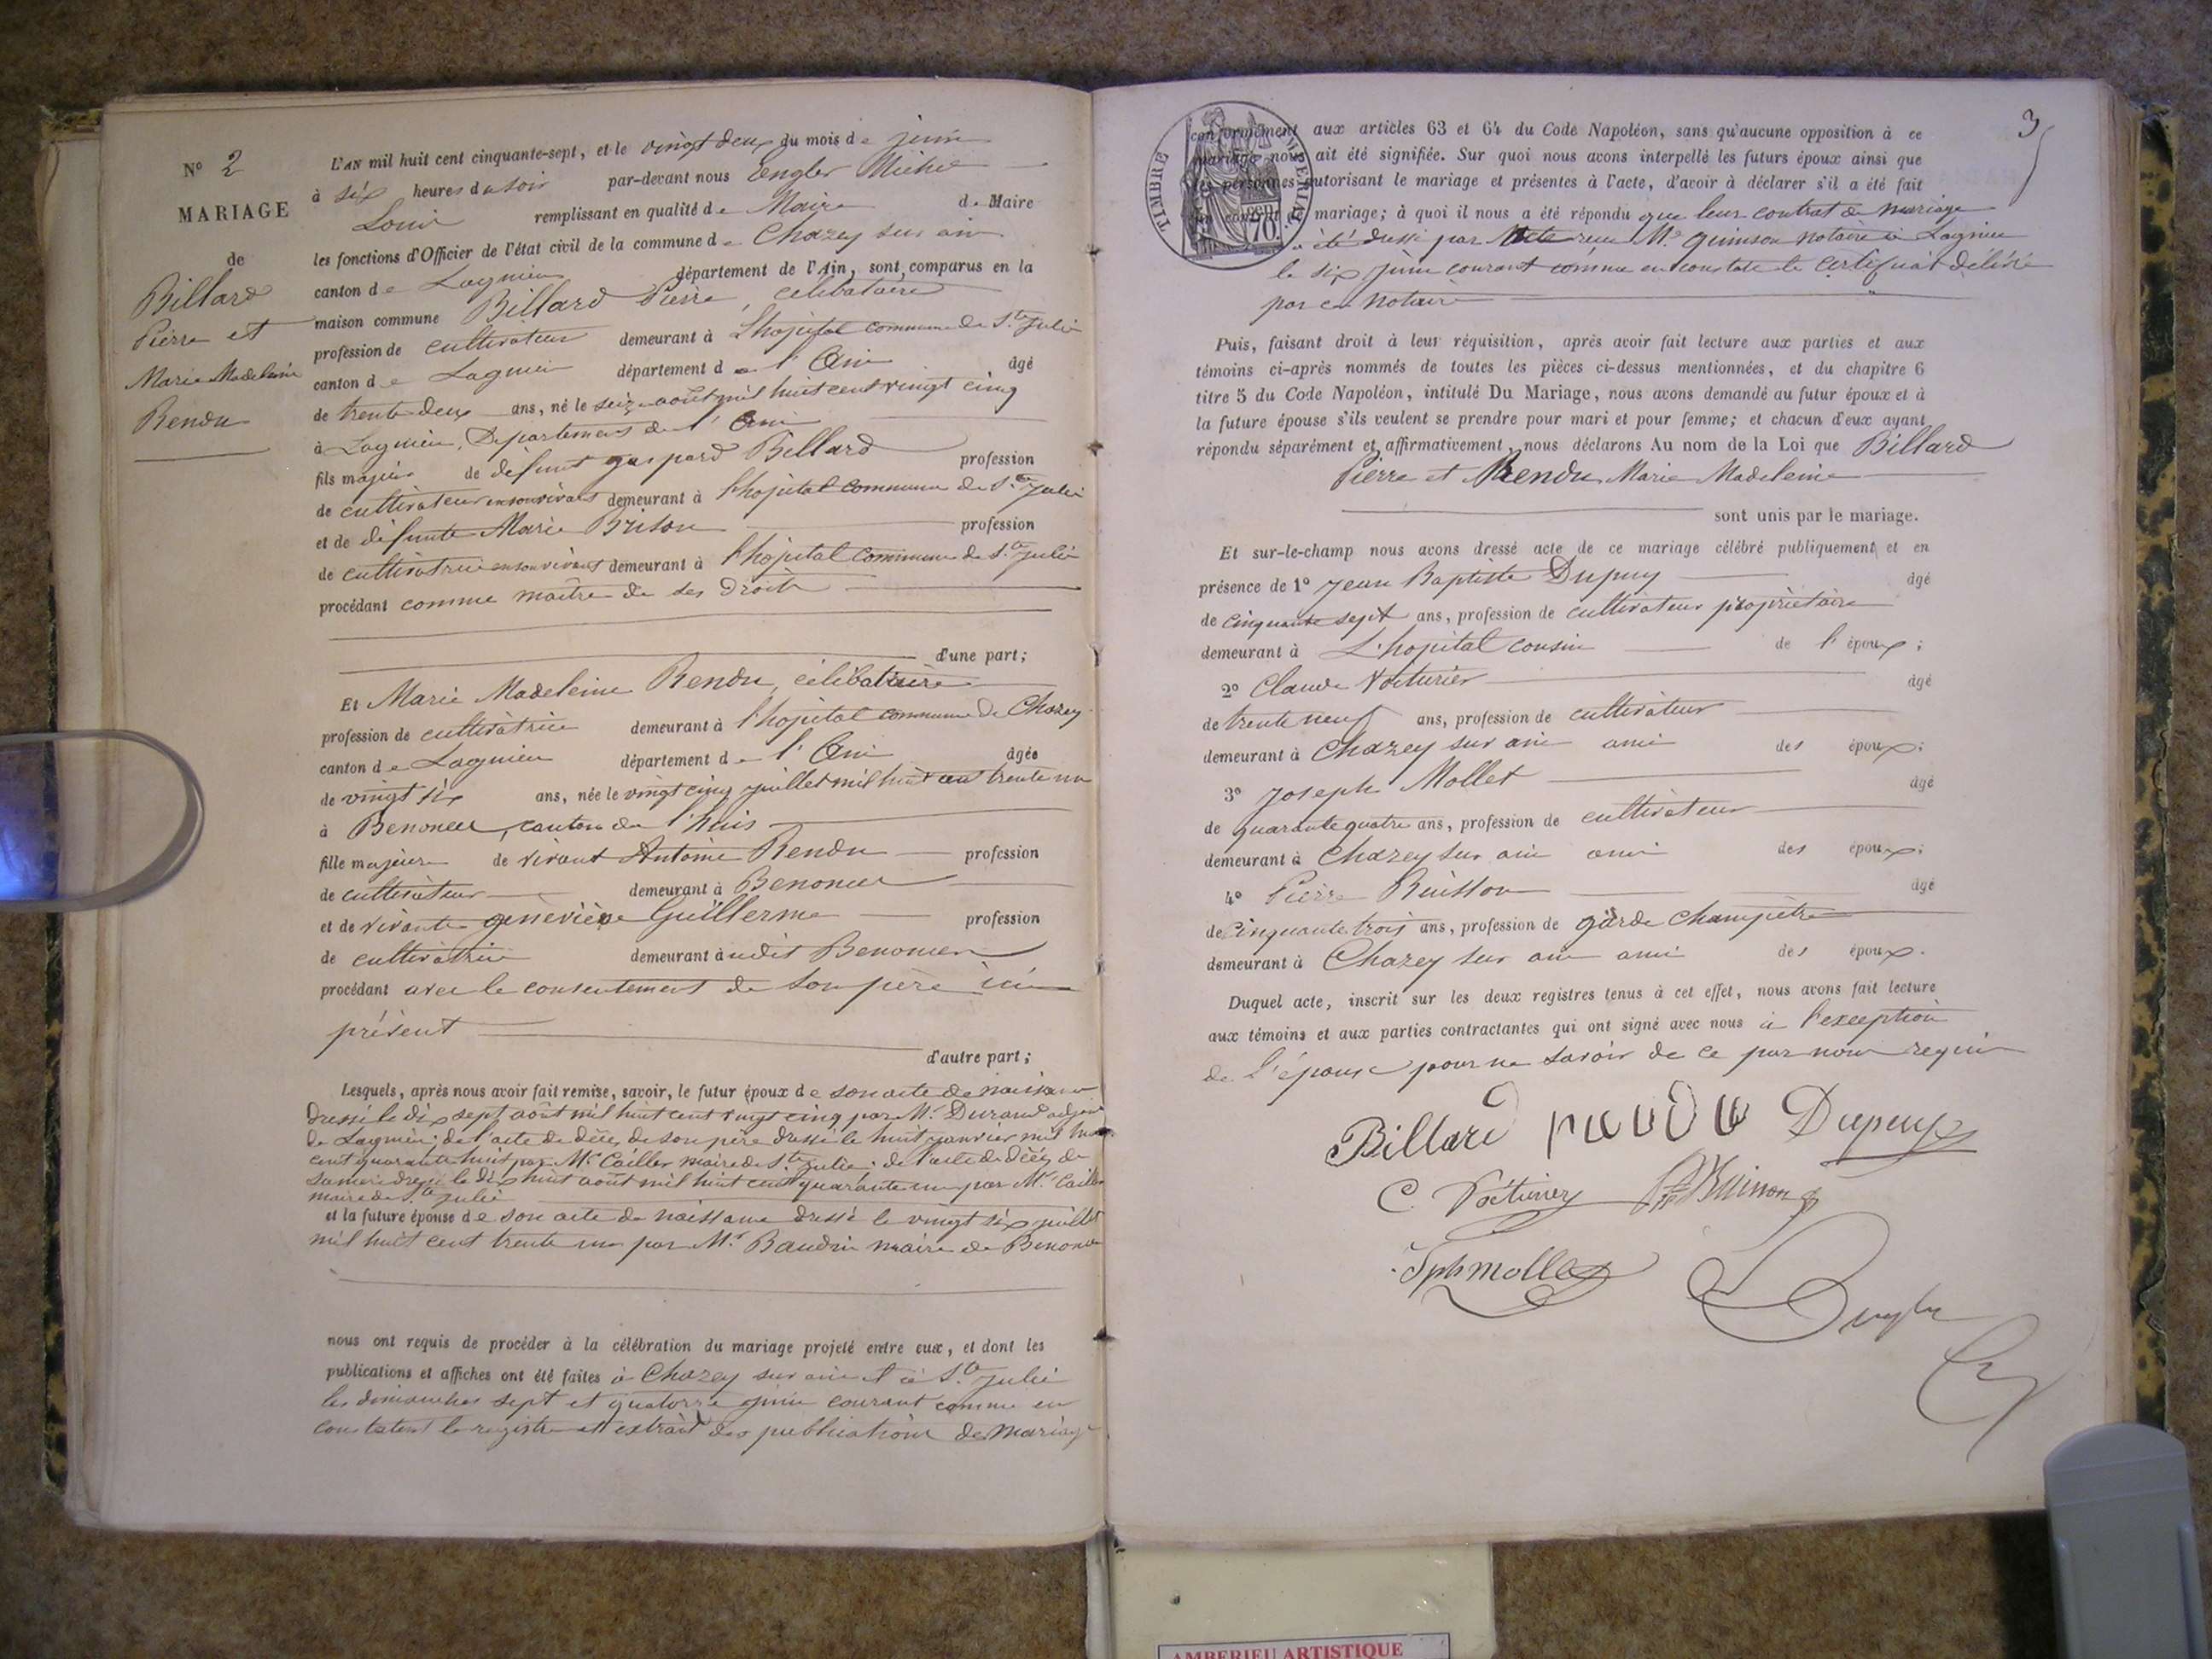 N° 2
MARIAGE
de
Billard
Pierre et
Marie Madeleine
Rendu
L'AN mil huit cent cinquante-sept, et le vingt deux du mois de juin
à six heures du soir par-devant nous Engler Michel
Louis remplissant en qualité de Maire de Maire
les fonctions d'Officier de l'état civil de la commune de Chazey sur ain
canton de Lagnieu département de l'Ain, sont comparus en la
maison commune Billard Pierre, célibataire
profession de cultivateur demeurant à L'hopital commune de Ste Julie
canton de Lagnieu département de l'Ain âgé
de trente deux ans, né le seize août mil huit cent vingt cinq
à Lagnieu, Département de l'Ain
fils majeur de défunt gaspard Billard profession
de cultivateur en son vivant demeurant à l'hopital commune de Ste Julie
et de défunte Marie Brison profession
de cultivatrice en son vivant demeurant à l'hopital commune de Ste Julie
procédant comme maître de ses droits
d'une part;
Et Marie Madeleine Rendu, célibataire
profession de cultivatrice demeurant à l'hopital commune de Chazey
canton de Lagnieu département de l'Ain âgée
de vingt six ans, née le vingt cinq juillet mil huit cent trente un
à Benonces, canton de l'huis
fille majeure de vivant Antoine Rendu profession
de cultivateur demeurant à Benonces
et de vivante geneviève Guillerme profession
de cultivatrice demeurant audit Benonces
procédant avec le consentement de son père ici
présent
d'autre part;
Lesquels, après nous avoir fait remise, savoir, le futur époux de son acte de naissance
dressé le dix sept août mil huit cent vingt cinq par Mr Durand adjoint
de Lagnieu; de l'acte de décès de son père dressé le huit janvier mil huit
cent quarante huit par Mr Cailler maire de Ste Julie; de l'acte de décès de
sa mère dressé le dix huit août mil huit cent quarante un par Mr Cailler
maire de Ste Julie
et la future épouse de son acte de naissance dressé le vingt six juillet
mil huit cent trente un par Mr Baudin maire de Benonces
nous ont requis de procéder à la célébration du mariage projeté entre eux, et dont les
publications et affiches ont été faites à Chazey sur ain et à Ste Julie
les dimanches sept et quatorze juin courant comme en
constatent le registre et extrait des publications de mariage
3
TIMBRE IMPERIAL
70 cen
conformément aux articles 63 et 64 du Code Napoléon, sans qu'aucune opposition à ce
mariage nous ait été signifiée. Sur quoi nous avons interpellé les futurs époux ainsi que
les personnes autorisant le mariage et présentes à l'acte, d'avoir à déclarer s'il a été fait
un contrat de mariage; à quoi il nous a été répondu que leur contrat de mariage
a été dressé par Mr quinson notaire à Lagnieu
le six juin courant comme en constate le certificat délivré
par ce notaire
Puis, faisant droit à leur réquisition, après avoir fait lecture aux parties et aux
témoins ci-après nommés de toutes les pièces ci-dessus mentionnées, et du chapitre 6
titre 5 du Code Napoléon, intitulé Du Mariage, nous avons demandé au futur époux et à
la future épouse s'ils veulent se prendre pour mari et pour femme; et chacun d'eux ayant
répondu séparément et affirmativement, nous déclarons Au nom de la Loi que Billard
Pierre et Rendu Marie Madeleine
sont unis par le mariage.
Et sur-le-champ nous avons dressé acte de ce mariage célébré publiquement et en
présence de 1° Jean Baptiste Dupuy âgé
de cinquante sept ans, profession de cultivateur propriétaire
demeurant à L'hopital cousin de l'époux;
2° Claude Voiturier âgé
de trente neuf ans, profession de cultivateur
demeurant à Chazey sur ain ami des époux;
3° Joseph Mollet âgé
de quarante quatre ans, profession de cultivateur
demeurant à Chazey sur ain ami des époux;
4° Pierre Buisson âgé
de cinquante trois ans, profession de garde champêtre
demeurant à Chazey sur ain ami des époux.
Duquel acte, inscrit sur les deux registres tenus à cet effet, nous avons fait lecture
aux témoins et aux parties contractantes qui ont signé avec nous à l'exception
de l'épouse pour ne savoir de ce par nous requis
Billard Dupuy
C. Voiturier Buisson
Jph mollet
Engler
AMBERIEU ARTISTIQUE